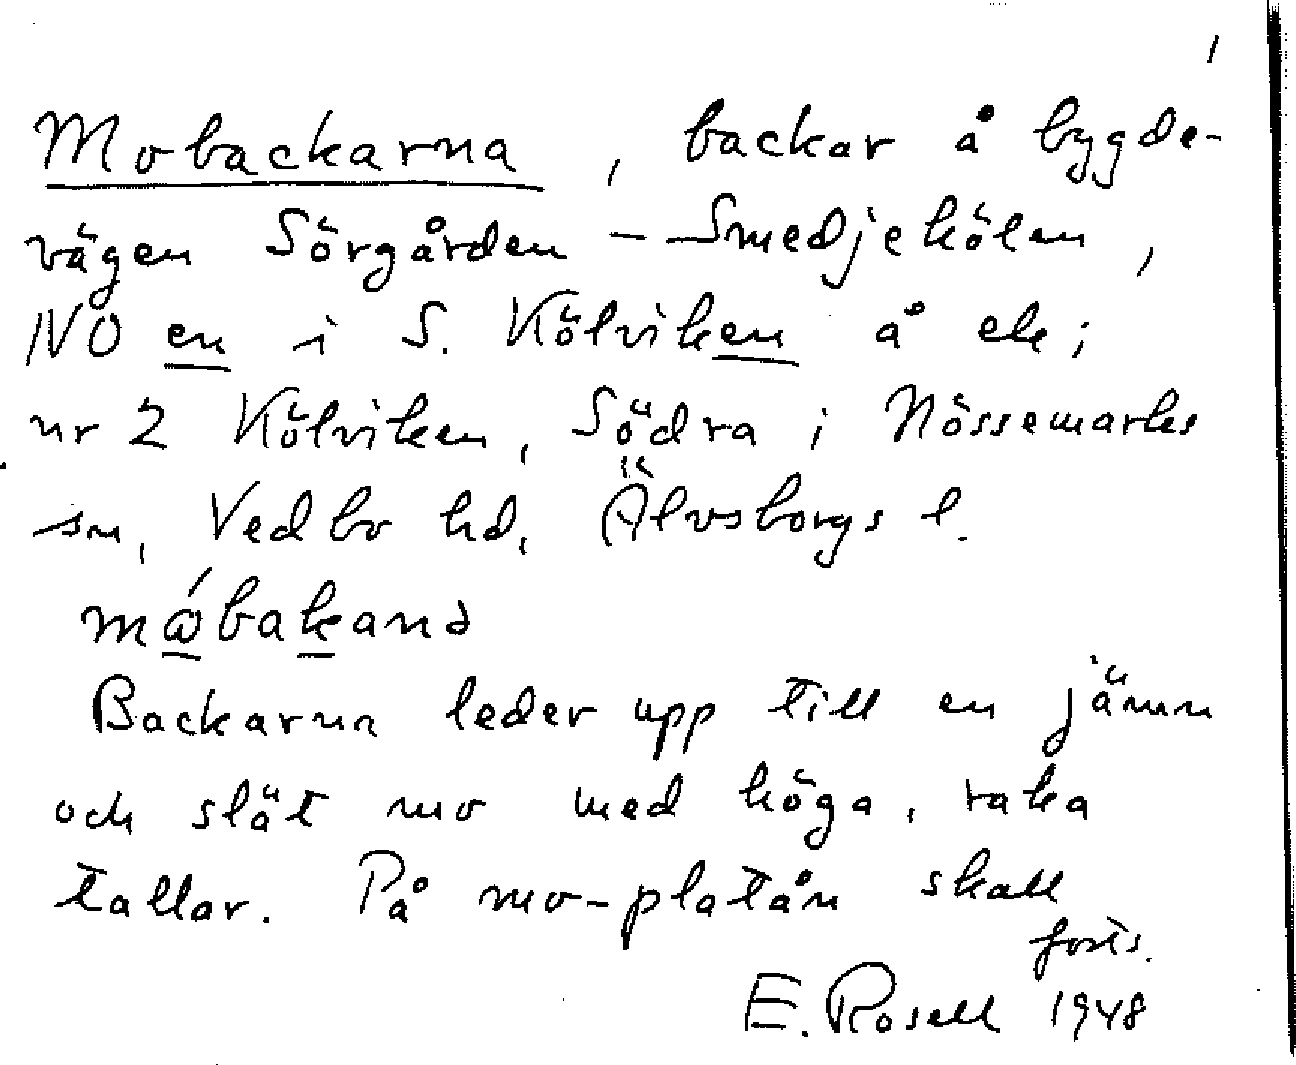 1
Mobackarna, backar å bygde-
vägen Sörgården - Smedjekölen,
NO en i S. Kölviken å ek;
nr 2 Kölviken, Södra i Nössemarks
sn, Vedbo hd, Älvsborgs l.
mǻbakanə
Backarna leder upp till en jämn
och slät mo med höga, raka
tallar. På mo-platån skall
forts.
E. Rosell 1948